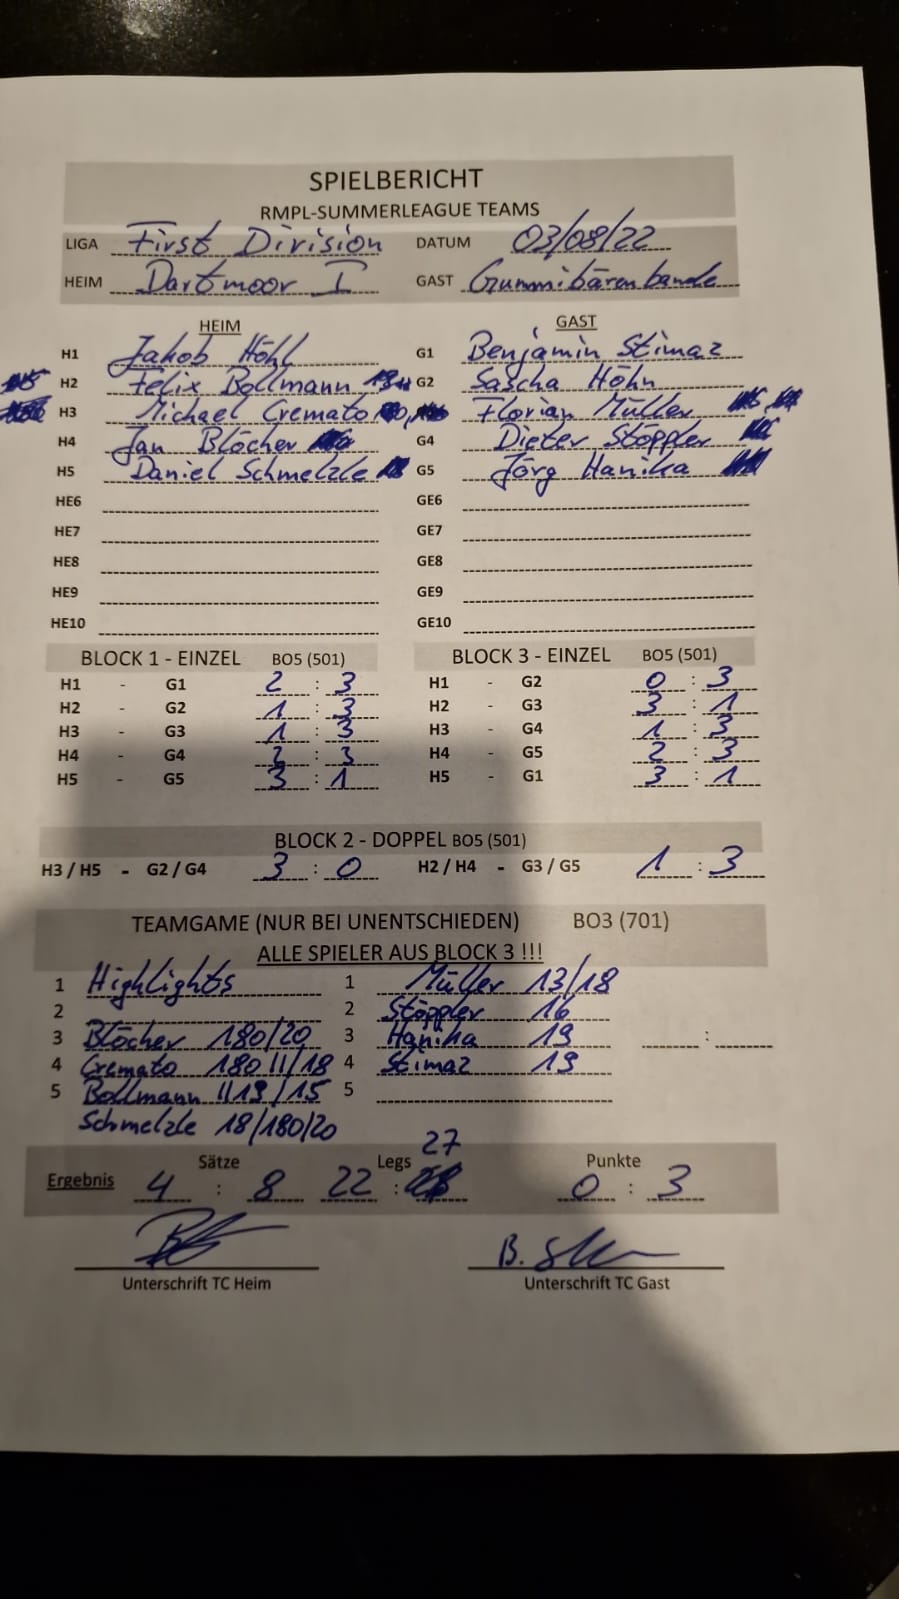 SPIELBERICHT
RMPL-SUMMERLEAGUE TEAMS
LIGA First Division DATUM 03/08/22
HEIM Dartmoor I GAST Gummibärenbande
HEIM GAST
H1 Jakob Höhl G1 Benjamin Stimaz
H2 Felix Bollmann G2 Sascha Höhn
H3 Michael Cremato G3 Florian Müller
H4 Jan Blöcher G4 Dieter Stöppler
H5 Daniel Schmelzle G5 Jörg Hanika
HE6 GE6
HE7 GE7
HE8 GE8
HE9 GE9
HE10 GE10
BLOCK 1 - EINZEL BO5 (501) BLOCK 3 - EINZEL BO5 (501)
H1 - G1 2 : 3 H1 - G2 0 : 3
H2 - G2 1 : 3 H2 - G3 3 : 1
H3 - G3 1 : 3 H3 - G4 1 : 3
H4 - G4 2 : 3 H4 - G5 2 : 3
H5 - G5 3 : 1 H5 - G1 3 : 1
BLOCK 2 - DOPPEL BO5 (501)
H3 / H5 - G2 / G4 3 : 0 H2 / H4 - G3 / G5 1 : 3
TEAMGAME (NUR BEI UNENTSCHIEDEN) BO3 (701)
ALLE SPIELER AUS BLOCK 3 !!!
1 Highlights 1 Müller 13/18
2 2 Stöppler 16
3 Blöcher 180/20 3 Hanika 19 :
4 Cremato 180 II/18 4 Stimaz 19
5 Bollmann II19/15 5
Schmelzle 18/180/20
27
Sätze Legs Punkte
Ergebnis 4 : 8 22 : 0 : 3
B. 
Unterschrift TC Heim Unterschrift TC Gast